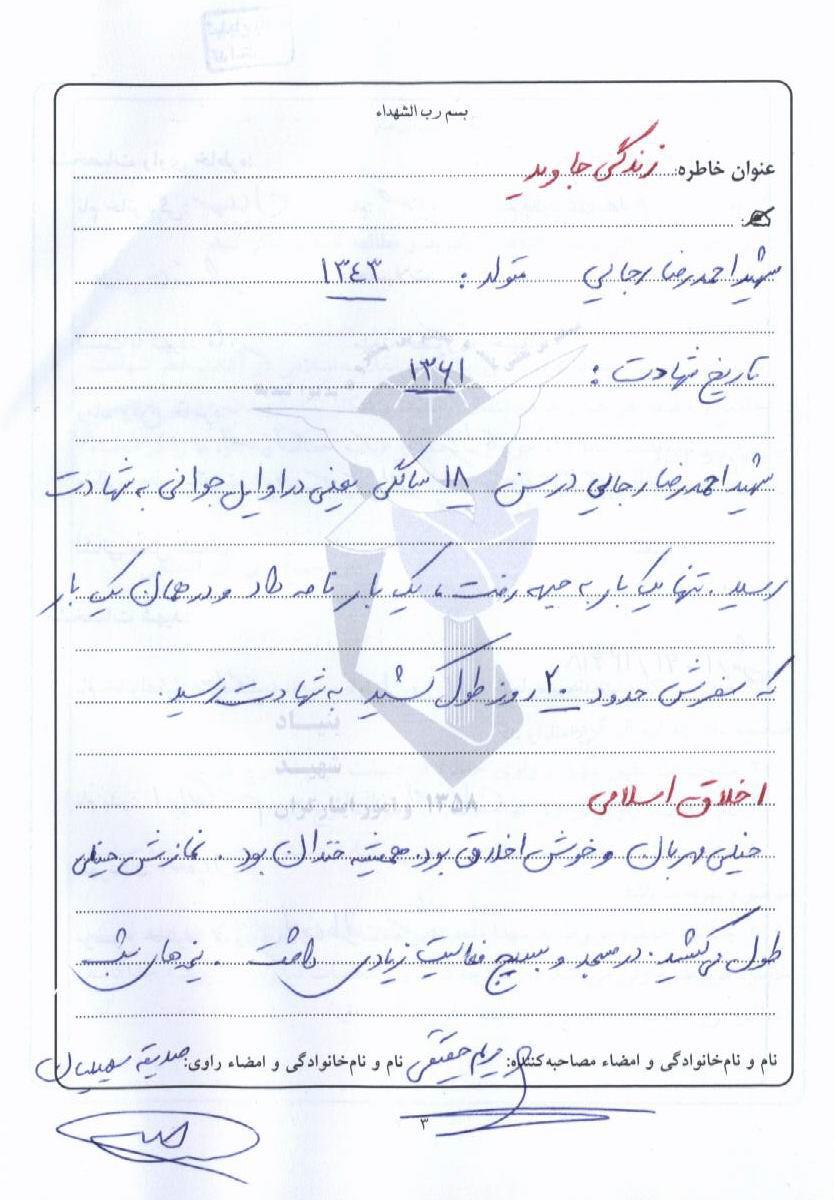 بسم رب الشهداء
عنوان خاطره: زندگی جاوید
شهید احمدرضا رجایی متولد: ۱۳۴۳
تاریخ شهادت: ۱۳۶۱
شهید احمدرضا رجایی در سن ۱۸ سالگی یعنی در اوایل جوانی به شهادت
رسید. تنها یک بار به جبهه رفت، یک بار نامه داد و در همان یک بار
که سفرش حدود ۲۰ روز طول کشید به شهادت رسید.
بنیاد
شهید
و امور ایثارگران ۱۳۵۸
اخلاق اسلامی
خیلی مهربان و خوش اخلاق بود. همیشه خندان بود. نمازش خیلی
طول می‌کشید. در مسجد و بسیج فعالیت زیادی داشت. نیمه‌های شب
نام و نام‌خانوادگی و امضاء مصاحبه‌کننده: مریم حقیقی نام و نام‌خانوادگی و امضاء راوی: صدیقه
۳